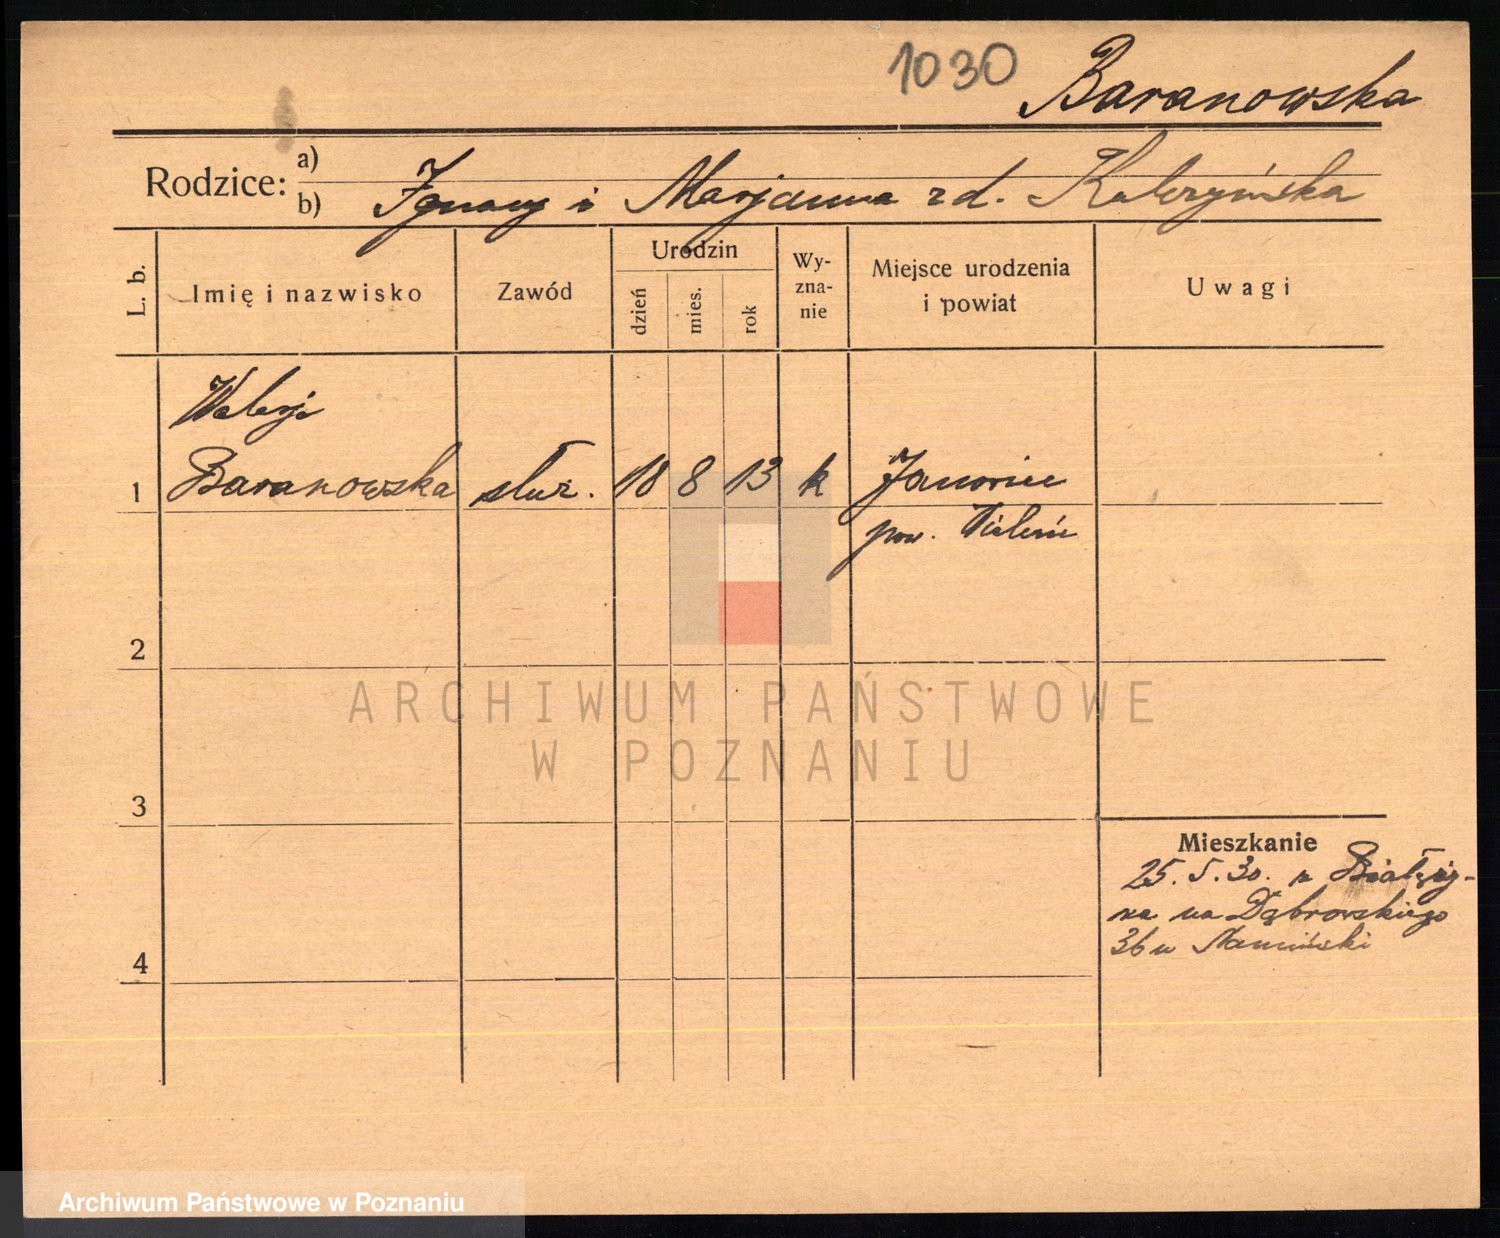 1030 Baranowska
Rodzice: a)
b) Ignacy i Marjanna zd.
L. b.
Imię i nazwisko
Zawód
Urodzin
dzień
mies.
rok
Wy-
zna-
nie
Miejsce urodzenia
i powiat
Uwagi
Walerja
1 Baranowska służ. 18 8 13 k Janowiec
pow. Wieleń
2
ARCHIWUM PAŃSTWOWE
W POZNANIU
3
Mieszkanie
25. 5. 30. z
na Dąbrowskiego
36 u
4
Archiwum Państwowe w Poznaniu